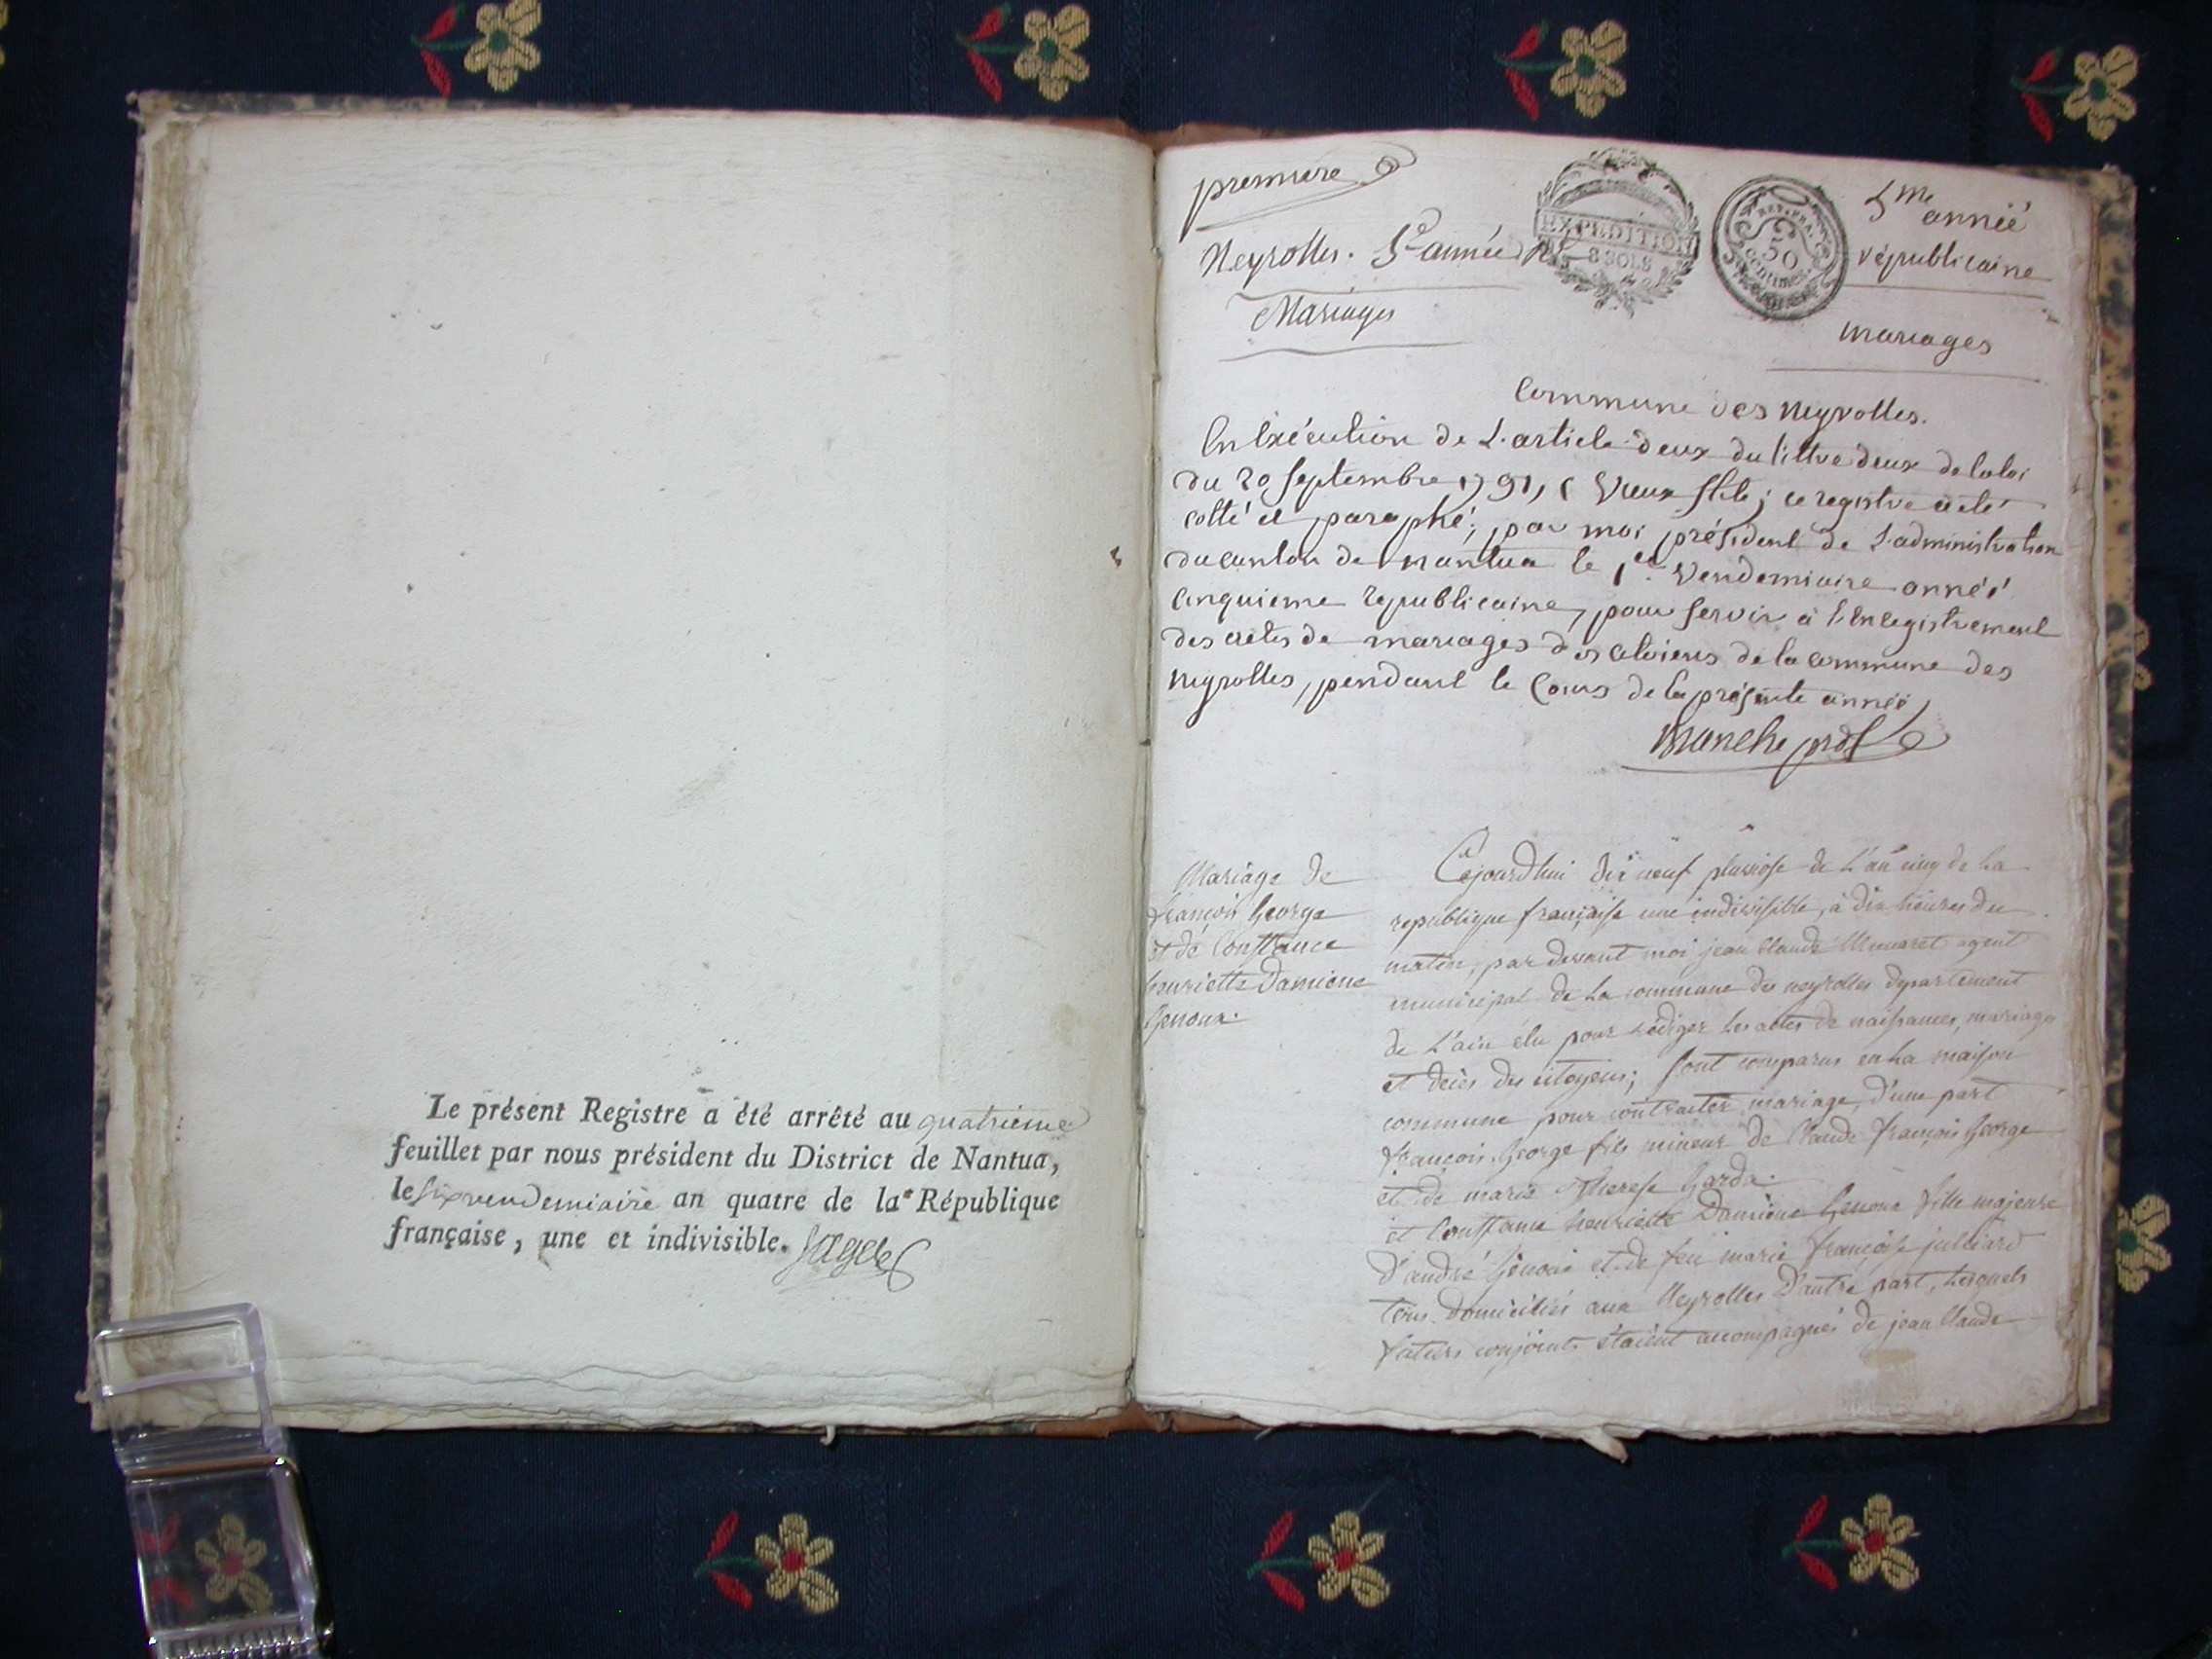 Le présent Registre a été arrêté au quatrieme
feuillet par nous président du District de Nantua,
le six vendemiaire an quatre de la République
française, une et indivisible.
premiere
Neyrolles. 5e année
Mariages
EXPEDITION
8 SOLS
REP. FRA.
50
CENTIMES
5me année
républicaine
mariages
Commune des Neyrolles.
En Exécution de L'article deux du tittre deux de la loi
du 20 septembre 1791, (vieux stile; ce registre a été
cotté et paraphé; par moi président de L'administration
du canton de nantua le 1er Vendemiaire année
Cinquieme republicaine, pour servir à L'Enregistrement
des actes de mariages des citoiens de la commune des
neyrolles, pendant le Cours de la présente année
Mariage de
françois George
et de Constance
henriette Damiene
Genoux.
Cejourdhui dix neuf pluviose de L'an cinq de La
republique française une indivisible, à dix heures du
matin, par devant moi jean Claude agent
municipal de La commune des neyrolles departement
de L'ain élu pour rédiger Les actes de naissances, mariages
et decès des citoyens; sont comparus en La maison
commune pour contracter mariage, d'une part
françois George fils mineur de Claude françois George
et de marie Therese Garda.
et Constance henriette Damiene Genoux fille majeure
d'andré Genoux et de feu marie françoise julliard
tous domiciliés aux Neyrolles D'autre part, Lesquels
futurs conjoints étaient accompagnés de jean Claude